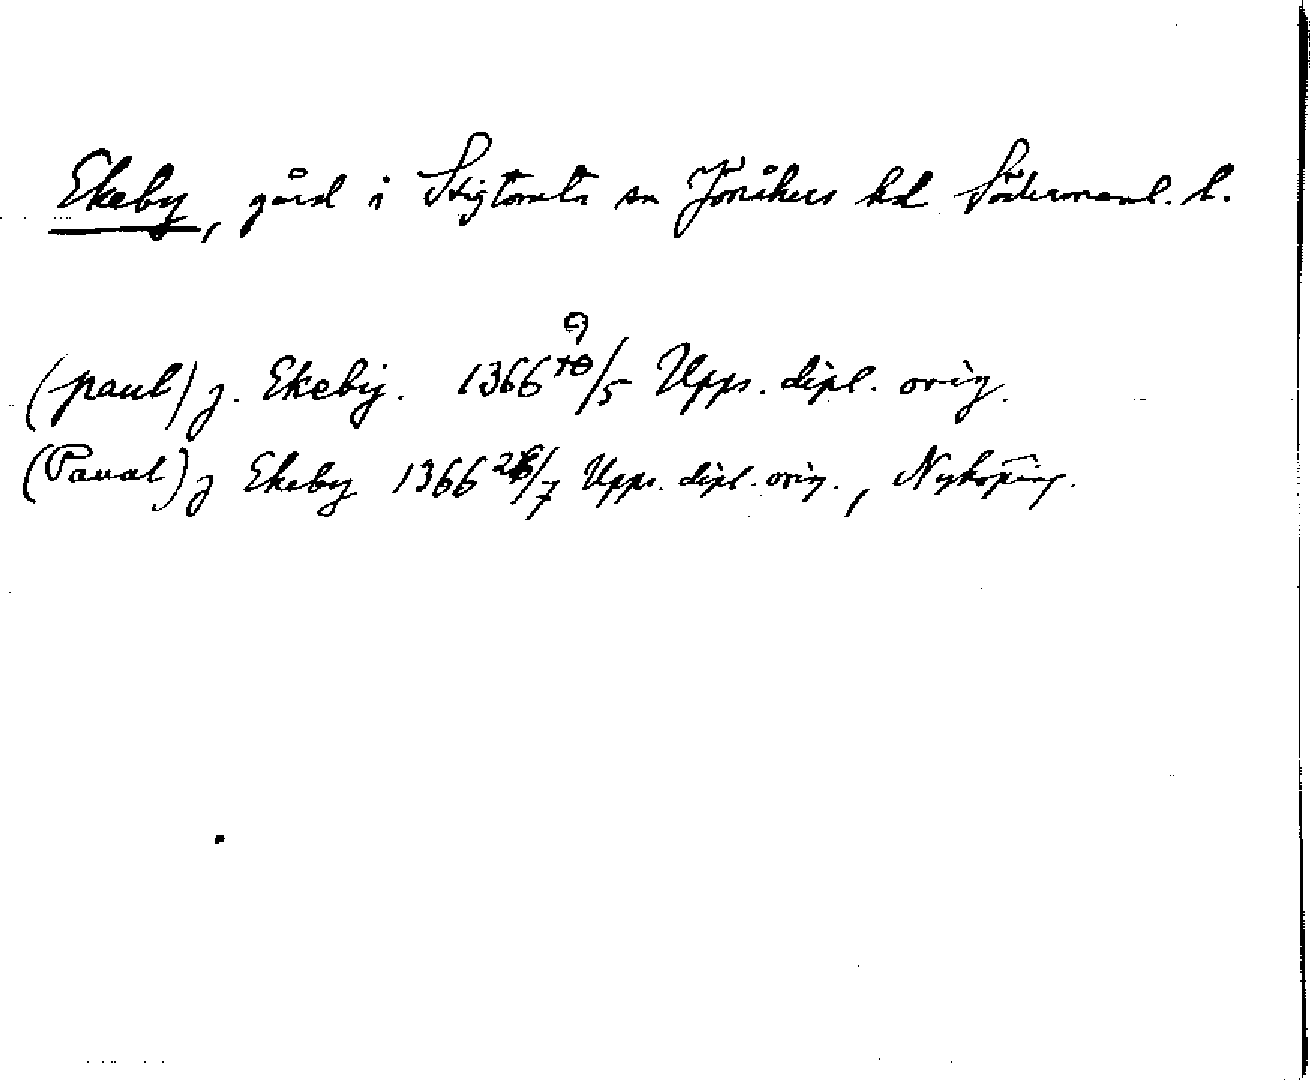 Ekeby, gård i Stigtomta sn Jönåkers hd Södermanl. l.
(paul) j. Ekeby. 1366 9/5 Upps. dipl. orig.
(Paual) j Ekeby 1366 /7 Upps. dipl. orig., Nyköping.